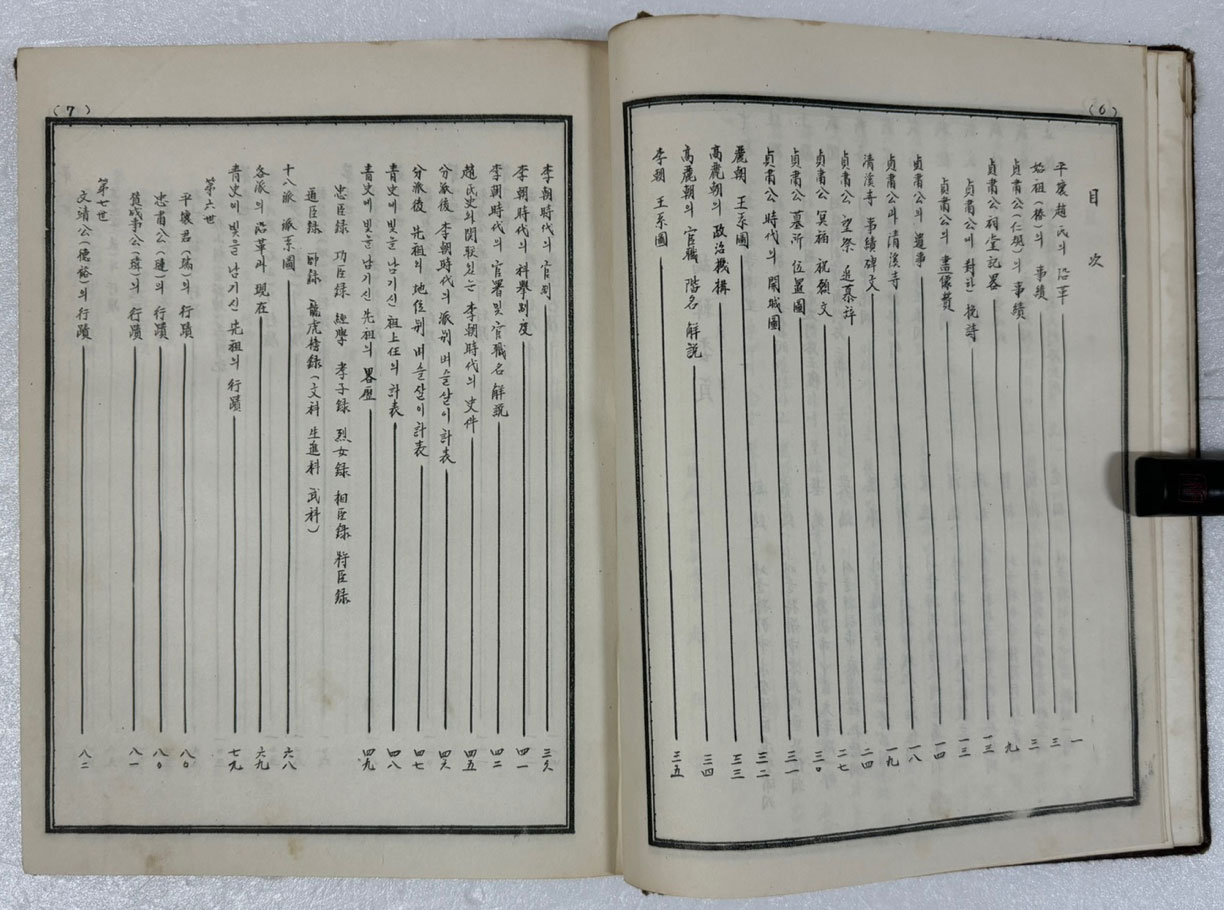 (6)
目次
平壤趙氏의 沿革 一
始祖(椿)의 事績 三
貞肅公(仁規)의 事績 三
貞肅公祠堂記畧 九
貞肅公에 對한 挽詩 一三
貞肅公의 畫像賛 一三
貞肅公의 遺事 一四
貞肅公과 清溪寺 一八
清溪寺 事績碑文 一九
貞肅公 望祭 追慕辞 二四
貞肅公 冥福 祝願文 二七
貞肅公 墓所 位置圖 三〇
貞肅公 時代의 開城圖 三一
麗朝 王系圖 三二
高麗朝의 政治機構 三三
高麗朝의 官職 階名 解説 三四
李朝 王系圖 三五
(7)
李朝時代의 官制 三八
李朝時代의 科擧制度 四一
李朝時代의 官署및 官職名 解説 四二
趙氏史와 関联있는 李朝時代의 史件 四五
分派後 李朝時代의 派別 벼슬살이 計表 四六
分派後 先祖의 地位別 벼슬살이 計表 四七
青史에 빛을 남기신 祖上任의 計表 四八
青史에 빛을 남기신 先祖의 畧歷 四九
忠臣錄 功臣錄 經學 孝子錄 烈女錄 相臣錄 將臣錄
道臣錄 卿錄 龍虎榜錄(文科 生進科 武科)
十八派 派系圖 六八
各派의 沿革과 現在 六九
青史에 빛을 남기신 先祖의 行蹟 七九
第六世
平壤君(瑞)의 行蹟 八〇
忠肅公(璉)의 行蹟 八〇
賛成事公(瑋)의 行蹟 八一
第七世
文靖公(德裕)의 行蹟 八二